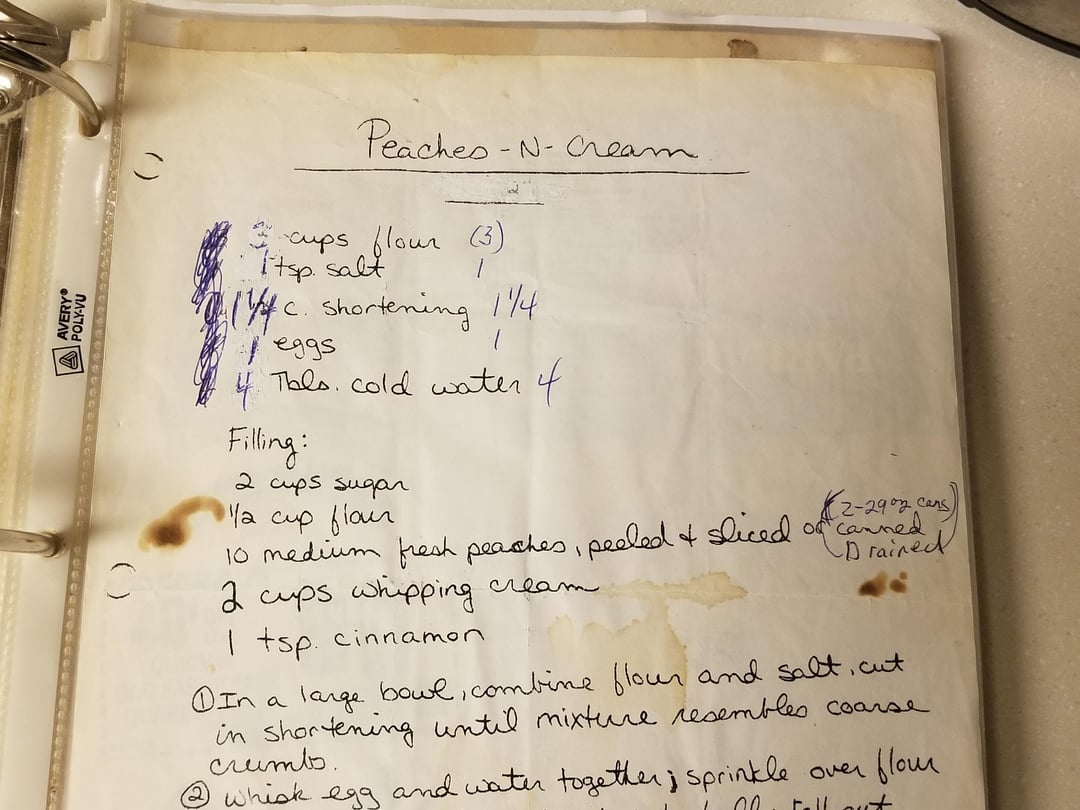 Peaches-N-Cream
3 cups flour (3)
1 tsp. salt 1
1 1/4 c. shortening 1 1/4
1 eggs 1
4 Tbls. cold water 4
Filling:
2 cups sugar
1/2 cup flour
10 medium fresh peaches, peeled & sliced or (2-29oz cans)
canned
Drained
2 cups whipping cream
1 tsp. cinnamon
① In a large bowl, combine flour and salt, cut
in shortening until mixture resembles coarse
crumbs.
② Whisk egg and water together; sprinkle over flour
AVERY®
POLY-VU